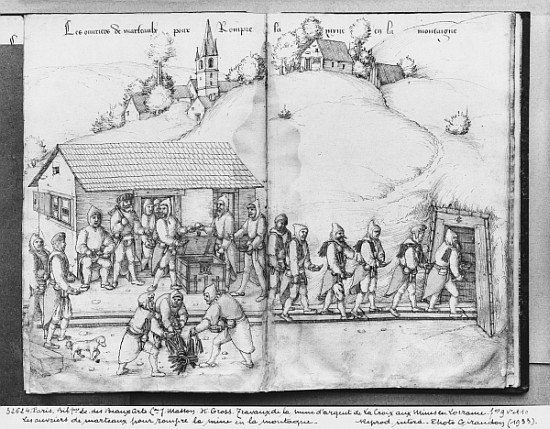 Les ouvriers de marteaulx pour Rompre la myne en la montaigne
32624. Paris, Bib.que Ec. des Beaux Arts (Don J. Masson. H. Gross. Travaux de la mine d'argent de la Croix aux Mines en Lorraine.
Les ouvriers de marteaux pour rompre la mine en la montagne. Reprod. interd. Photo Giraudon (1933).